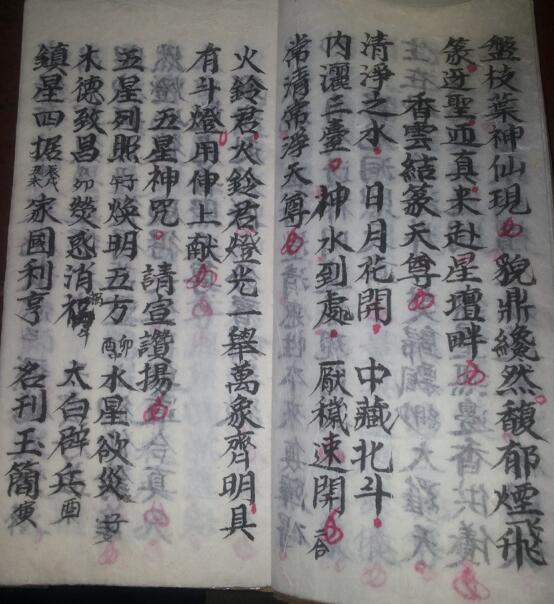 盤枝葉神仙現 貌鼎纔然馥郁煙飛
篆迓聖迎真来赴星壇畔
香雲結篆天尊
清淨之水 日月花開 中藏北斗
内灑三臺 神水到處 厭穢速開 吞
常清常淨天尊
火鈴君火鈴君燈光一舉萬象齊明具
有斗燈用伸上献
五星神咒 請宣讚揚
五星列照 煥明五方 水星欲災
木德致昌 卯 熒惑消禍 太白辟兵 酉
鎮星四据 家國利亨 名刊玉簡 寅